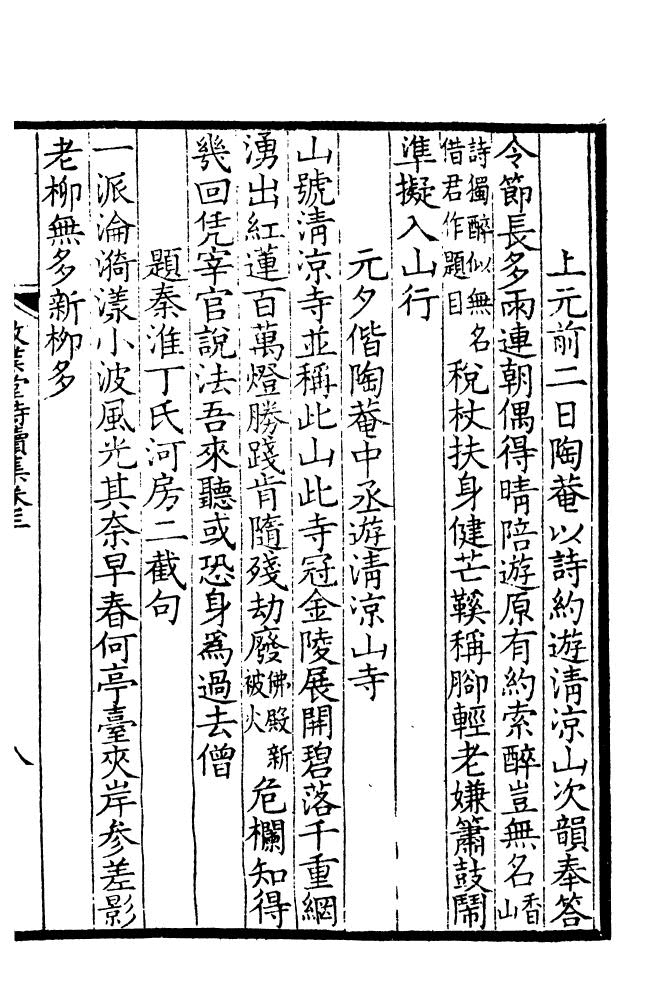 上元前二日陶菴以詩約遊清凉山次韻奉答
令節長多雨連朝偶得晴陪遊原有約索醉豈無名香山
詩獨醉似無名借君作題目稅杖扶身健芒鞵稱腳輕老嫌簫鼓鬧
準擬入山行
元夕偕陶菴中丞遊清凉山寺
山號清凉寺並稱此山此寺冠金陵展開碧落千重綱
湧出紅蓮百萬燈勝踐肯隨殘劫廢佛殿新被火危欄知得
幾回凭宰官說法吾來聽或恐身爲過去僧
題秦淮丁氏河房二截句
一派淪漪漾小波風光其奈早春何亭臺夾岸參差影
老柳無多新柳多
敬業堂詩續集卷三
八